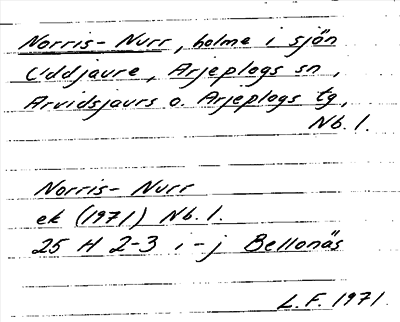 Norris-Nurr, holme i sjön
Uddjaure, Arjeplogs sn,
Arvidsjaurs o. Arjeplogs tg,
Nb. l.
Norris-Nurr
ek (1971) Nb. l.
25 H 2-3 i-j Bellonäs
L. F. 1971.